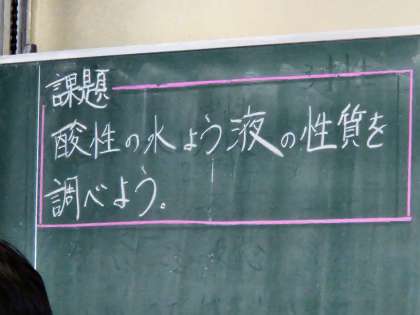 課題
酸性の水よう液の性質を
調べよう。